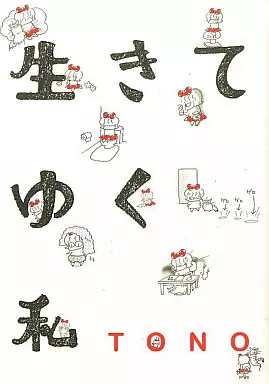 生きて
ゆく
私
TONO